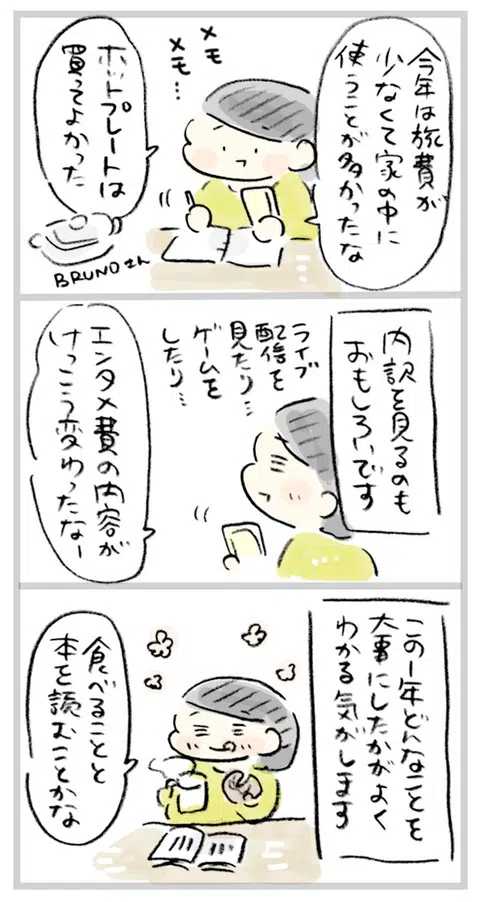 今年は旅費が
少なくて家の中に
使うことが多かったな
メモ
メモ…
ホットプレートは
買ってよかった
BRUNOさん
内訳を見るのも
おもしろいです
ライブ
配信を
見たり…
ゲームを
したり…
エンタメ費の内容が
けっこう変わったなー
この1年どんなことを
大事にしたかがよく
わかる気がします
食べることと
本を読むことかな